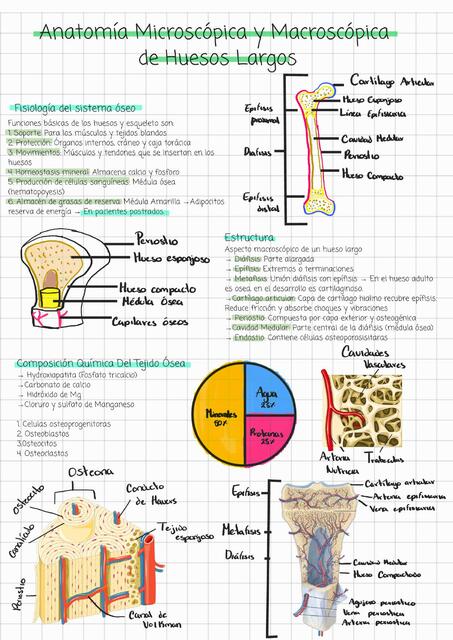 Anatomía Microscópica y Macroscópica
de Huesos Largos
Fisiología del sistema óseo
Funciones básicas de los huesos y esqueleto son:
1. Soporte: Para los músculos y tejidos blandos
2. Protección: Órganos internos, cráneo y caja torácica
3. Movimientos: Músculos y tendones que se insertan en los
huesos
4. Homeostasis mineral: Almacena calcio y fosforo
5. Producción de células sanguíneas: Médula ósea
(hematopoyesis)
6. Almacén de grasas de reserva: Médula Amarilla → Adipocitos
reserva de energía → En pacientes postrados.
Cartílago Articular
Hueso Esponjoso
Línea Epifisiaria
Epífisis
proximal
Cavidad Medular
Diáfisis
Periostio
Hueso Compacto
Epífisis
distal
Periostio
Hueso esponjoso
Hueso compacto
Médula ósea
Capilares óseos
Estructura
Aspecto macroscópico de un hueso largo
→ Diáfisis: Parte alargada
→ Epífisis: Extremos o terminaciones
→ Metafisis: Unión diáfisis con epífisis → En el hueso adulto
es ósea, en el desarrollo es cartilaginoso.
→ Cartílago articular: Capa de cartílago hialino recubre epífisis.
Reduce fricción y absorbe choques y vibraciones
→ Periostio: Compuesta por capa exterior y osteogénica
→ Cavidad Medular: Parte central de la diáfisis (médula ósea)
→ Endostio: Contiene células osteoporositarias
Composición Química Del Tejido Ósea
→ Hydroxapatita (Fosfato tricalcio)
→ Carbonato de calcio
→ Hidróxido de Mg
→ Cloruro y sulfato de Manganeso
1. Células osteoprogenitoras
2. Osteoblastos
3. Osteocitos
4. Osteoclastos
Minerales
50%
Agua
25%
Proteínas
25%
Cavidades
Vasculares
Arteria
Nutricia
Trabéculas
Osteona
Osteocito
Conducto
de Havers
Canalículo
Tejido
esponjoso
Periostio
Canal de
Volkman
Epífisis
Cartílago articular
Arteria epifisiaria
Vena epifisiaria
Metafisis
Diáfisis
Cavidad Medular
Hueso Compacto
Agujero periostico
Vena periostica
Arteria periostica